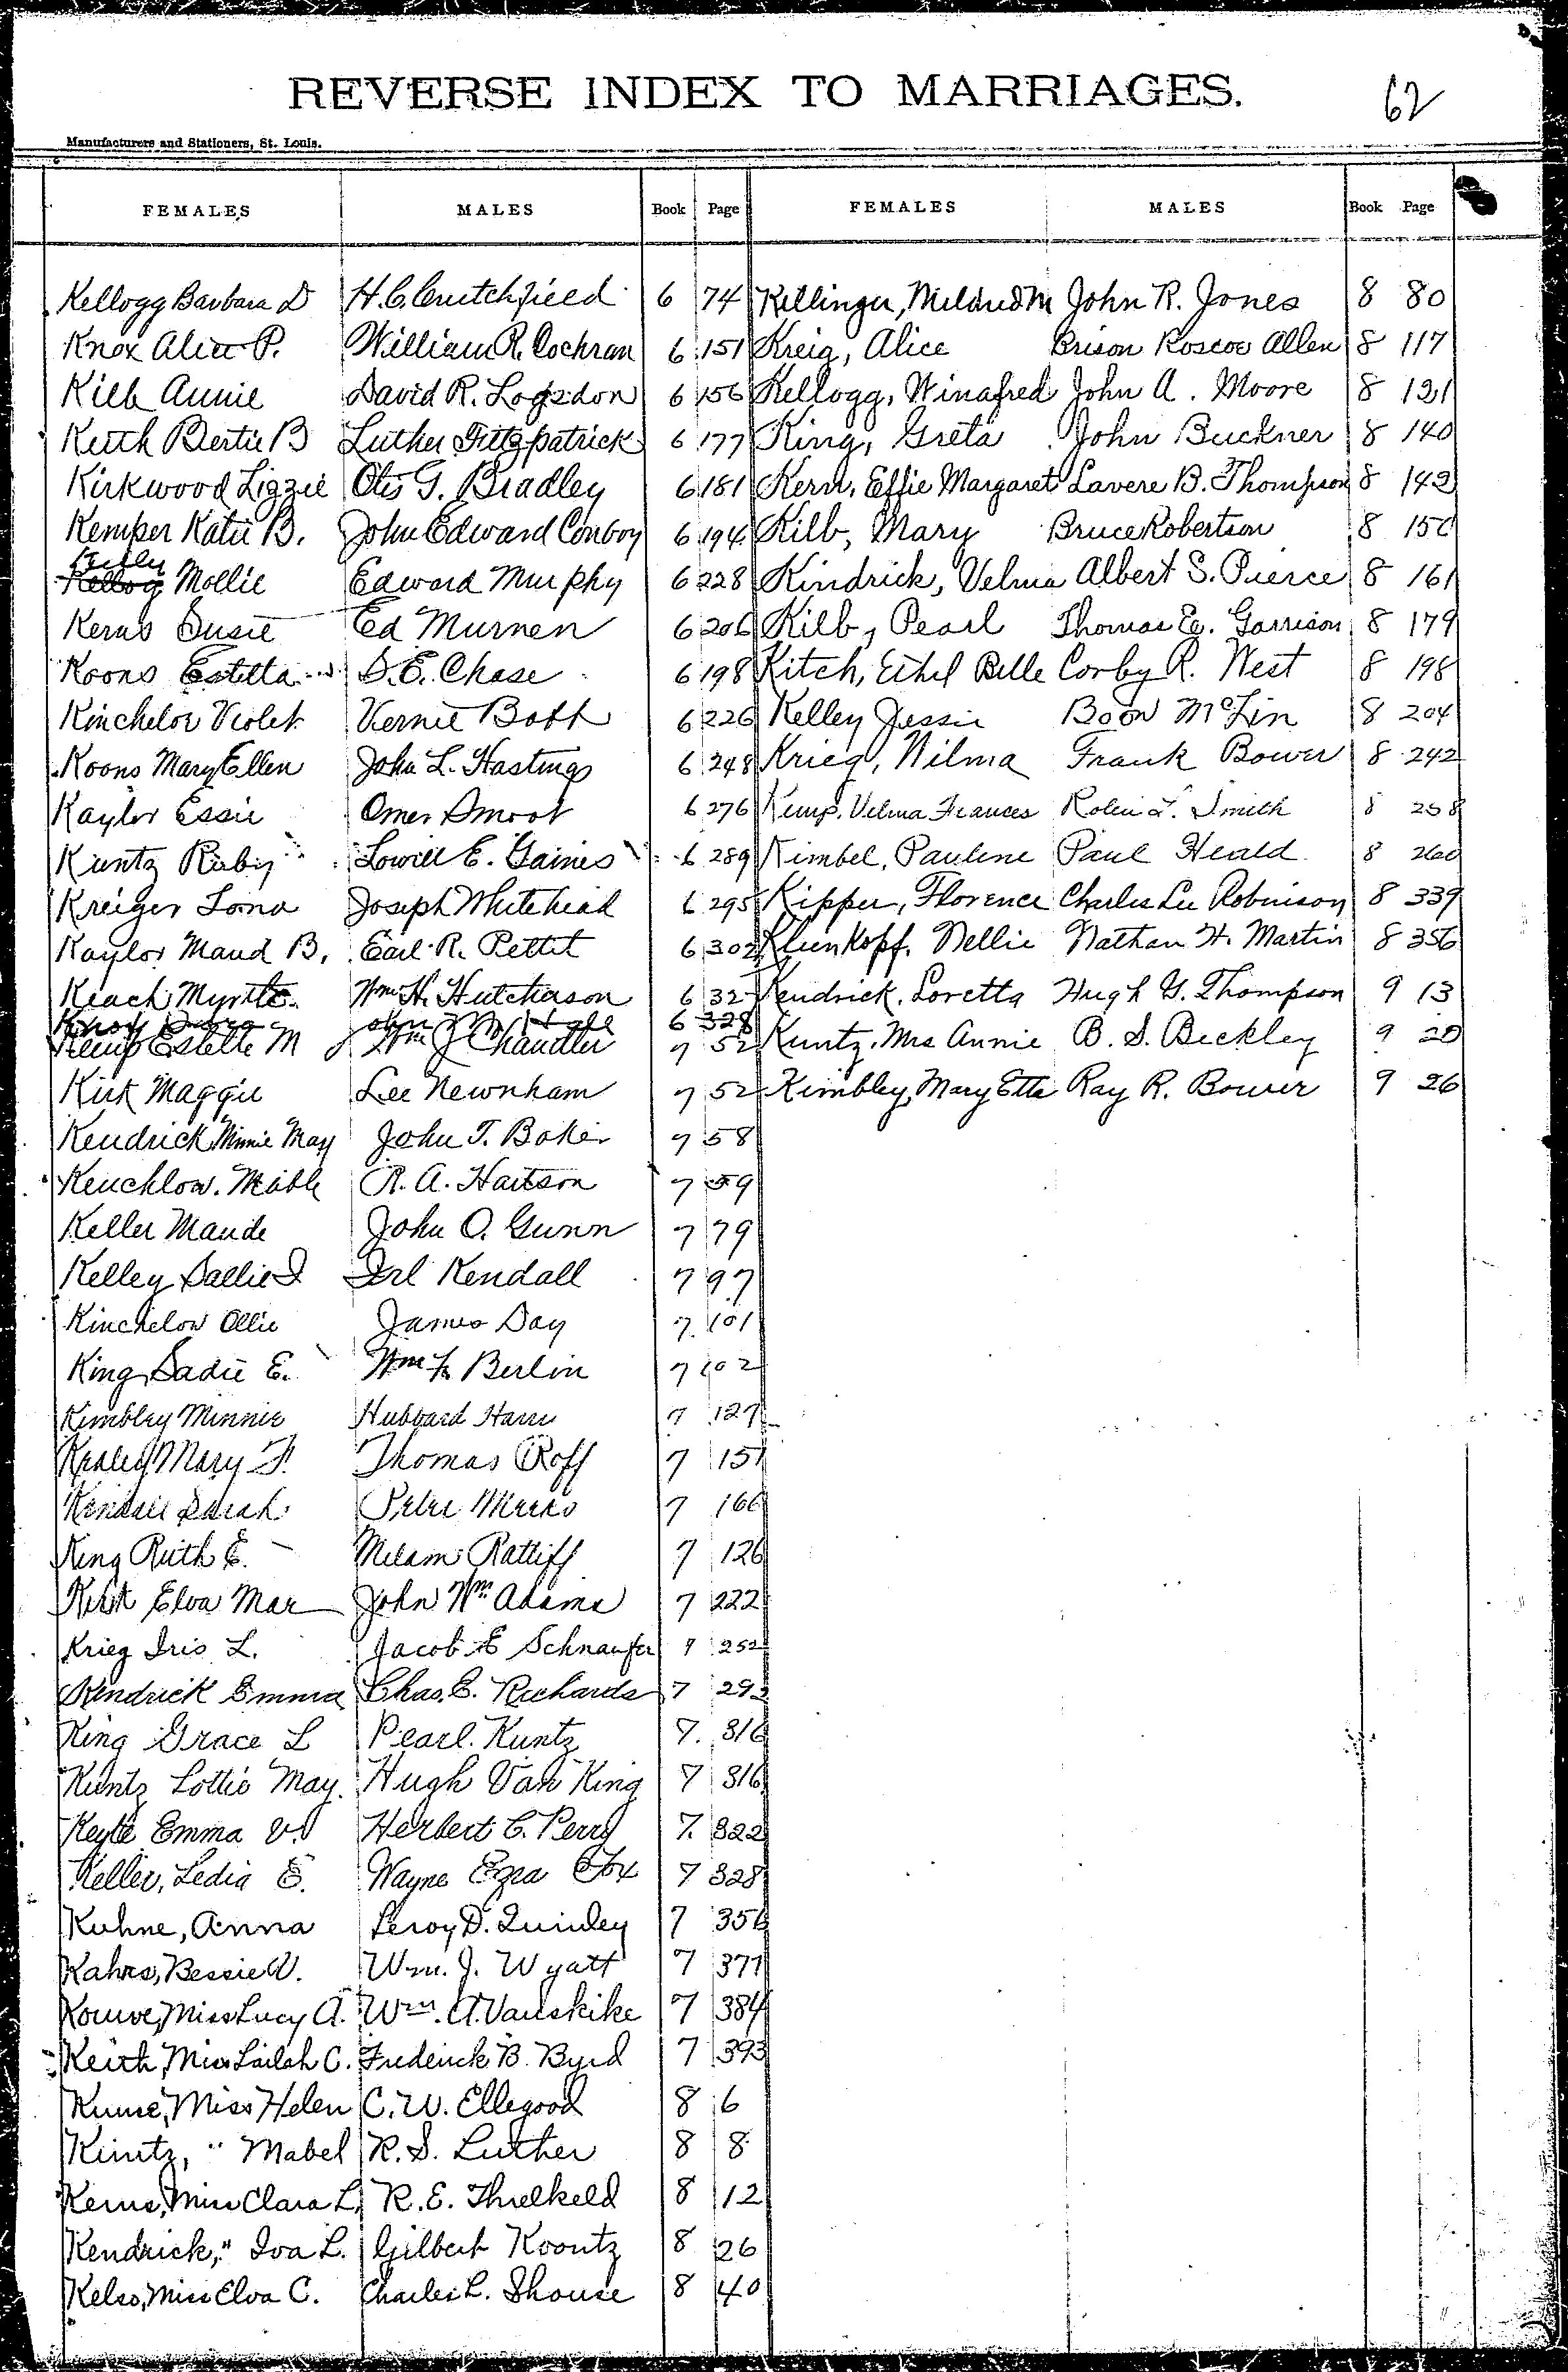 REVERSE INDEX TO MARRIAGES.
62
Manufacturers and Stationers, St. Louis.
FEMALES MALES Book Page FEMALES MALES Book Page
Kellogg Barbara D H. C. Crutchfield 6 74 Killinger, Mildred M John R. Jones 8 80
Knox Alice P. William R. Cochran 6 151 Kreig, Alice Brison Roscoe Allen 8 117
Kilb Annie David R. Logsdon 6 156 Kellogg, Winafred John A. Moore 8 121
Keith Bertie B Luther Fitzpatrick 6 177 King, Greta John Buckner 8 140
Kirkwood Lizzie Otis G. Bradley 6 181 Kern, Effie Margaret Lavere B. Thompson 8 142
Kemper Katie B. John Edward Conboy 6 194 Kilb, Mary Bruce Robertson 8 150
Mollie Edward Murphy 6 228 Kindrick, Velma Albert S. Pierce 8 161
Kerns Susie Ed Murnen 6 206 Kilb, Pearl Thomas Garrison 8 179
Koons Estella S. E. Chase 6 198 Kitch, Ethel Belle Corby R. West 8 198
Kinchelor Violet Vernie Bott 6 226 Kelley Jessie Boon McLin 8 204
Koons Mary Ellen John L. Hastings 6 248 Krieg, Wilma Frank Bower 8 242
Kaylor Essie Omer Smoot 6 276 Kemp, Velma Frances Smith 8 258
Kuntz Ruby Lowell E. Gaines 6 289 Kimbel, Pauline Paul Heald 8 260
Kreiger Lona Joseph Whitehead 6 295 Kipper, Florence Charles Lee Robinson 8 339
Kaylor Maud B. Earl R. Pettit 6 302 Klienkopf, Nellie Nathan H. Martin 8 356
Keach Myrtle Wm H. Hutcherson 6 32 Kendrick, Loretta Hugh G. Thompson 9 13
6 328
Kemp Estelle M Wm J Chandler 7 52 Kuntz, Mrs Annie B. S. Beckley 9 20
Kirk Maggie Lee Newnham 7 52 Kimbley, Mary Etta Ray R. Bower 9 26
Kendrick Minnie May John T. Baker 7 58
Kenchlow. Mable R. A. Hartson 7 59
Keller Maude John O. Gunn 7 79
Kelley Sallie I Irl Kendall 7 97
Kinchelow Ollie James Day 7 101
King Sadie E. Wm F. Berlin 7 102
Kimbley Minnie Hubbard Harris 7 127
Mary F. Thomas Roff 7 151
Kendall Sarah Peter 7 166
King Ruth E. Milam Ratliff 7 126
Kirk Elva Mae John Wm Adams 7 222
Krieg Iris L. Jacob E Schnaufer 7 252
Kendrick Emma Chas. E. Richards 7 292
King Grace L Pearl Kuntz 7 316
Kuntz Lottie May. Hugh Van King 7 316
Keyte Emma V. Herbert C. Perry 7 322
Keller, Ledia E. Wayne Ezra Cox 7 328
Kuhne, Anna Leroy D. Quinley 7 356
Kahrs, Bessie V. Wm. J. Wyatt 7 377
Miss Lucy A. Wm. A. Vanskike 7 384
Keith, Miss Lailah C. Frederick B. Byrd 7 393
Miss Helen C. W. Ellegood 8 6
Kintz, " Mabel R. S. Luther 8 8
Kerns, Miss Clara L. R. E. Threlkeld 8 12
Kendrick, " Iva L. Gilbert Koontz 8 26
Kelso, Miss Elva C. Charles L. Shouse 8 40